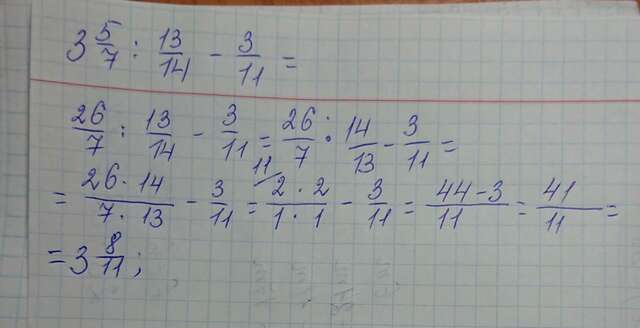 3 5/7 : 13/14 - 3/11 =
26/7 : 13/14 - 3/11 = 26/7 · 14/13 - 3/11 =
= 26·14/7·13 - 3/11 = 11/ 2·2/1·1 - 3/11 = 44-3/11 = 41/11 =
= 3 8/11;